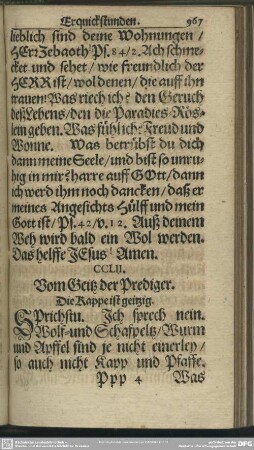 Erquickstunden. 967
lieblich sind deine Wohnungen /
HErr Zebaoth/ Ps. 84/2. Ach schme-
cket und sehet / wie freundlich der
HERR ist / wol denen / die auff ihn
trauen! Was riech ich? den Geruch
deß Lebens / den die Paradies-Rös-
lein geben. Was fühl ich? Freud und
Wonne. Was betrübst du dich
dann meine Seele / und bist so unru-
hig in mir? harre auff GOtt / dann
ich werd ihm noch dancken / daß er
meines Angesichts Hülff und mein
Gott ist / Ps. 42/ v. 12. Auß deinem
Weh wird bald ein Wol werden.
Das helffe JEsus! Amen.
CCLII.
Vom Geitz der Prediger.
Die Kappe ist geitzig.
SPrichstu. Ich sprech nein.
Wolf- und Schafpeltz / Wurm
und Apffel sind je nicht einerley /
so auch nicht Kapp und Pfaffe.
Ppp 4 Was
DFG